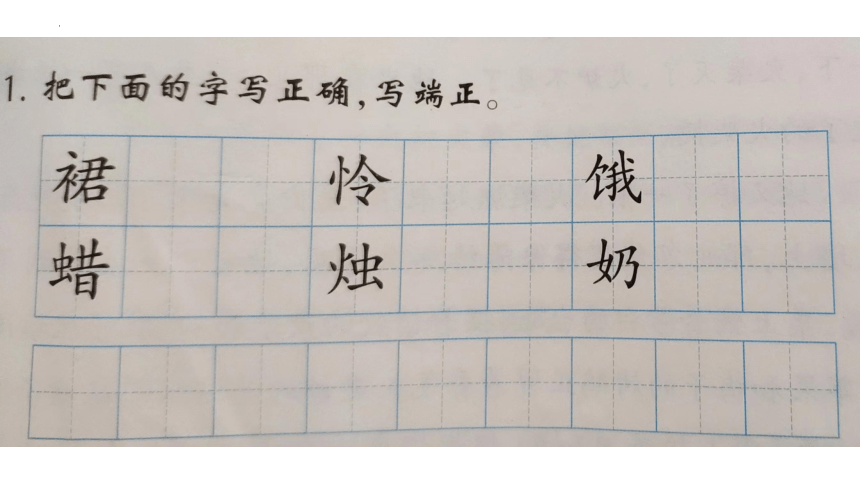 1. 把下面的字写正确,写端正。
裙 怜 饿
蜡 烛 奶